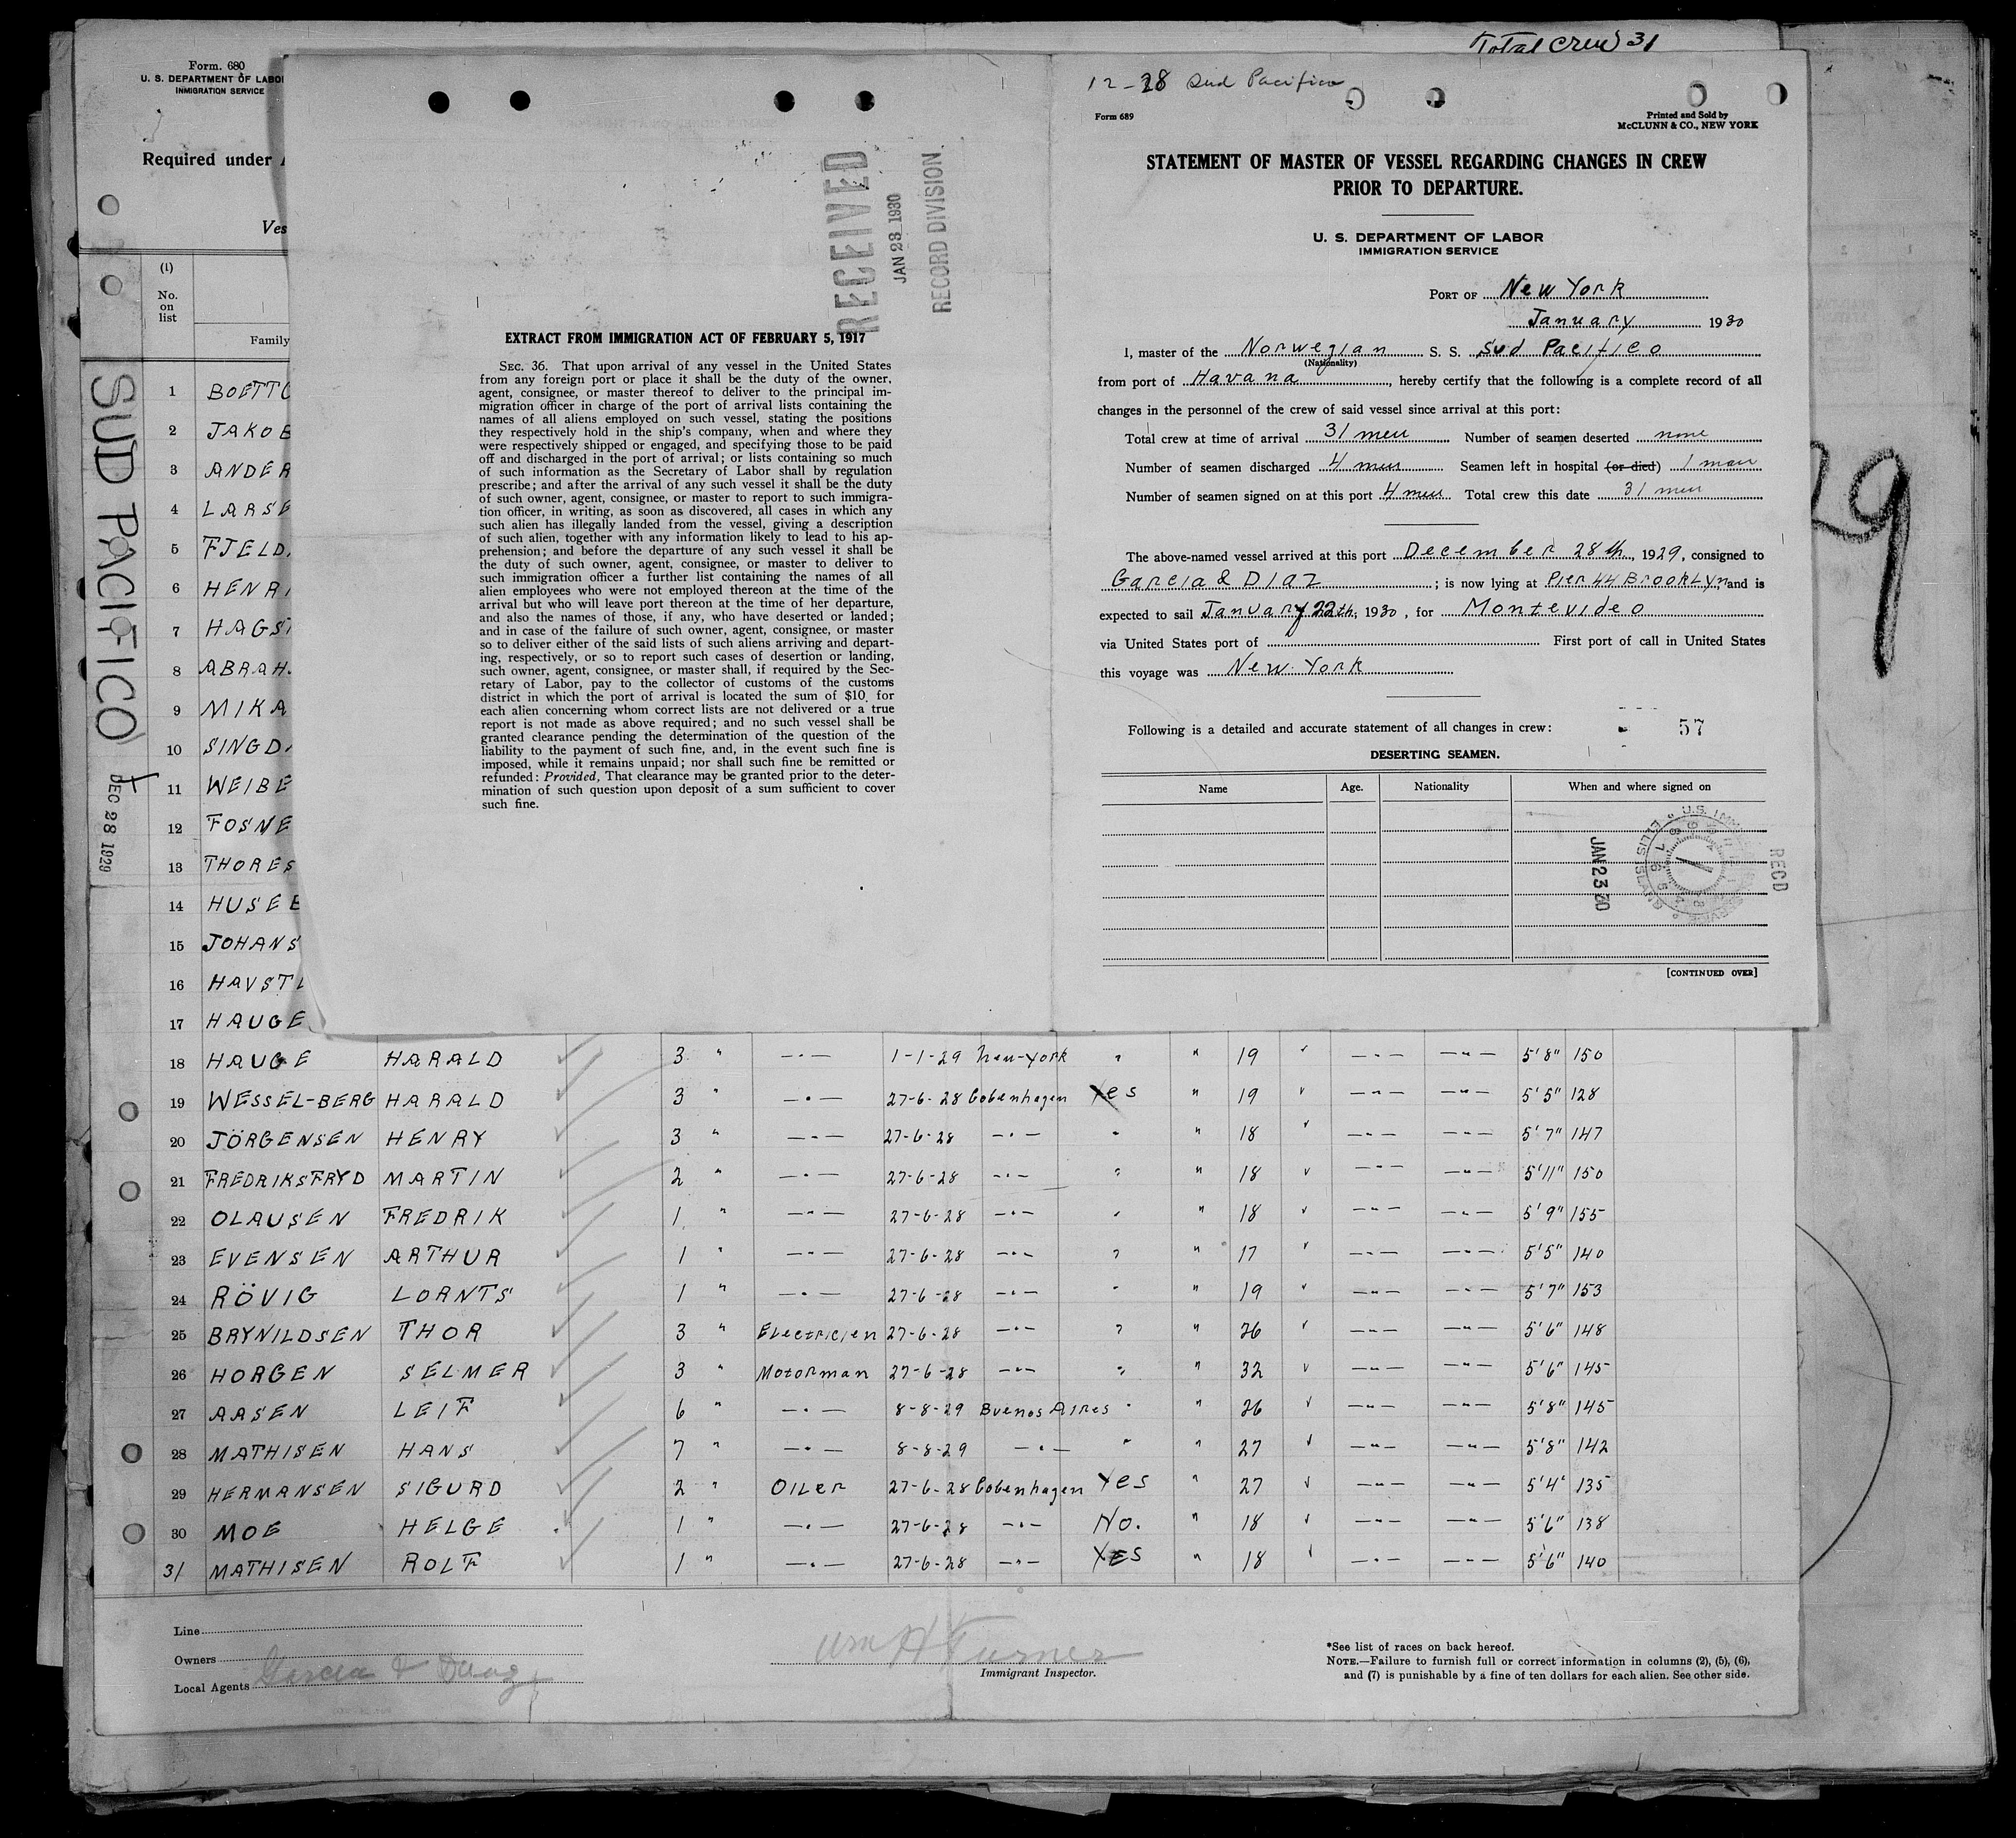 Total Crew 31
Form. 680
U. S. DEPARTMENT OF LABO
IMMIGRATION SERVICE
Required under
Ves
(1)
No.
on
list
Family
SUD PACIFICO
DEC 28 1929
1 BOETTC
2 JAKOB
3 ANDER
4 LARSE
5 FJELD
6 HENRI
7 HAGST
8 ABRAH
9 MIKA
10 SINGD
11 WEIBE
12 FOSNE
13 THORES
14 HUSEB
15 JOHANS
16 HAVST
17 HAUGE
RECEIVED
JAN 23 1930
RECORD DIVISION.
EXTRACT FROM IMMIGRATION ACT OF FEBRUARY 5, 1917
SEC. 36. That upon arrival of any vessel in the United States
from any foreign port or place it shall be the duty of the owner,
agent, consignee, or master thereof to deliver to the principal im-
migration officer in charge of the port of arrival lists containing the
names of all aliens employed on such vessel, stating the positions
they respectively hold in the ship's company, when and where they
were respectively shipped or engaged, and specifying those to be paid
off and discharged in the port of arrival; or lists containing so much
of such information as the Secretary of Labor shall by regulation
prescribe; and after the arrival of any such vessel it shall be the duty
of such owner, agent, consignee, or master to report to such immigra-
tion officer, in writing, as soon as discovered, all cases in which any
such alien has illegally landed from the vessel, giving a description
of such alien, together with any information likely to lead to his ap-
prehension; and before the departure of any such vessel it shall be
the duty of such owner, agent, consignee, or master to deliver to
such immigration officer a further list containing the names of all
alien employees who were not employed thereon at the time of the
arrival but who will leave port thereon at the time of her departure,
and also the names of those, if any, who have deserted or landed;
and in case of the failure of such owner, agent, consignee, or master
so to deliver either of the said lists of such aliens arriving and depart-
ing, respectively, or so to report such cases of desertion or landing,
such owner, agent, consignee, or master shall, if required by the Sec-
retary of Labor, pay to the collector of customs of the customs
district in which the port of arrival is located the sum of $10 for
each alien concerning whom correct lists are not delivered or a true
report is not made as above required; and no such vessel shall be
granted clearance pending the determination of the question of the
liability to the payment of such fine, and, in the event such fine is
imposed, while it remains unpaid; nor shall such fine be remitted or
refunded: Provided, That clearance may be granted prior to the deter-
mination of such question upon deposit of a sum sufficient to cover
such fine.
12-28 Sud Pacifico
Form 689
Printed and Sold by
McCLUNN & CO., NEW YORK
STATEMENT OF MASTER OF VESSEL REGARDING CHANGES IN CREW
PRIOR TO DEPARTURE.
U. S. DEPARTMENT OF LABOR
IMMIGRATION SERVICE
PORT OF New York
January 1930
I, master of the Norwegian S. S. Sud Pacifico
(Nationality)
from port of Havana, hereby certify that the following is a complete record of all
changes in the personnel of the crew of said vessel since arrival at this port:
Total crew at time of arrival 31 men Number of seamen deserted none
Number of seamen discharged 4 men Seamen left in hospital (or died) 1 man
Number of seamen signed on at this port 4 men Total crew this date 31 men
The above-named vessel arrived at this port December 28th, 1929, consigned to
Garcia & Diaz; is now lying at Pier 44 Brooklyn and is
expected to sail January 22th, 1930, for Montevideo
via United States port of First port of call in United States
this voyage was New York
Following is a detailed and accurate statement of all changes in crew: 57
DESERTING SEAMEN.
Name Age. Nationality When and where signed on
JAN 23 30
REC'D
U.S. IMM
ELLIS ISLAND
[CONTINUED OVER]
29
18 HAUGE HARALD 3 " —"— 1-1-29 New-York " " 19 " —"— —"— 5'8" 150
19 WESSEL-BERG HARALD 3 " —"— 27-6-28 Cobenhagen Yes " 19 " —"— —"— 5'5" 128
20 JÖRGENSEN HENRY 3 " —"— 27-6-28 —"— " " 18 " —"— —"— 5'7" 147
21 FREDRIKSFRYD MARTIN 2 " —"— 27-6-28 —"— " " 18 " —"— —"— 5'11" 150
22 OLAUSEN FREDRIK 1 " —"— 27-6-28 —"— " " 18 " —"— —"— 5'9" 155
23 EVENSEN ARTHUR 1 " —"— 27-6-28 —"— " " 17 " —"— —"— 5'5" 140
24 RÖVIG LORNTS 1 " —"— 27-6-28 —"— " " 19 " —"— —"— 5'7" 153
25 BRYNILDSEN THOR 3 " Electricien 27-6-28 —"— " " 26 " —"— —"— 5'6" 148
26 HORGEN SELMER 3 " Motorman 27-6-28 —"— " " 32 " —"— —"— 5'6" 145
27 AASEN LEIF 6 " —"— 8-8-29 Buenos Aires " " 26 " —"— —"— 5'8" 145
28 MATHISEN HANS 7 " —"— 8-8-29 —"— " " 27 " —"— —"— 5'8" 142
29 HERMANSEN SIGURD 2 " Oiler 27-6-28 Cobenhagen Yes " 27 " —"— —"— 5'4" 135
30 MOE HELGE 1 " —"— 27-6-28 —"— No. " 18 " —"— —"— 5'6" 138
31 MATHISEN ROLF 1 " —"— 27-6-28 —"— YES " 18 " —"— —"— 5'6" 140
Line
Owners
Local Agents Garcia & Diaz
Wm H Turner
Immigrant Inspector.
*See list of races on back hereof.
NOTE.—Failure to furnish full or correct information in columns (2), (5), (6),
and (7) is punishable by a fine of ten dollars for each alien. See other side.